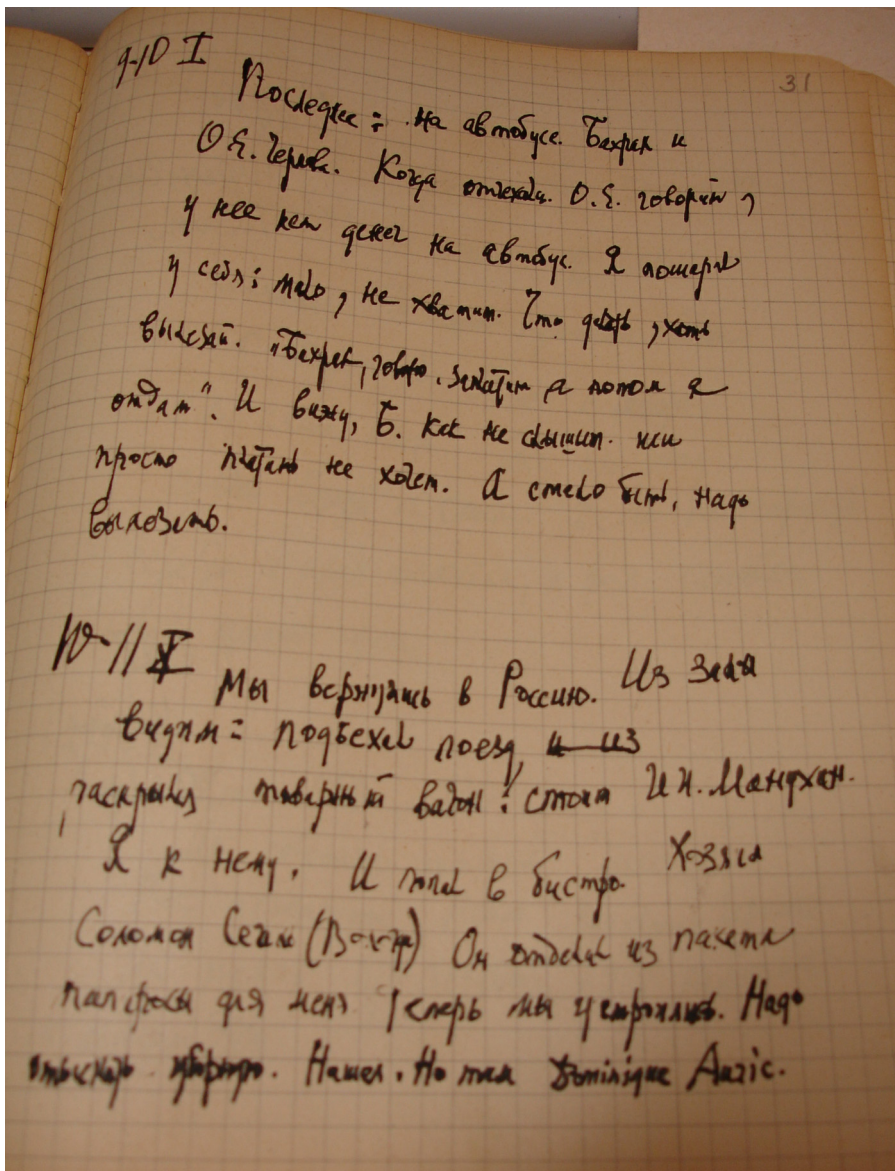 31
9-10 I
Последнее: на автобусе. Бахрах и
О.Е. Чернова. Когда отъехали. О.Е. говорит,
у нее нет денег на автобус. Я пошарил
у себя: мало, не хватит. Что делать, хоть
вылезай. "Бахрах, говорю, заплатите а потом я
отдам". И вижу, Б. как не слышит. или
просто платить не хочет. А стало быть, надо
вылезать.
10-11 X
Мы вернулись в Россию. Из зала
видим: подъехал поезд, и из
раскрылся товарный вагон: стоит И.И. Манухин.
Я к нему. И попал в бистро. Хозяин
Соломон Сегал Он отделил из пакета
папиросы для меня Теперь мы устроились. Надо
отыскать уборную. Нашел. Но там Dominique Auric.